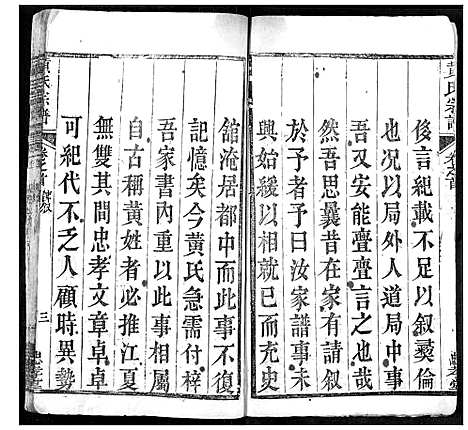 黃氏宗譜
卷之首
後言紀載不足以叙彞倫
也况以局外人道局中事
吾又安能亹亹言之也雖
然吾思曩昔在家有請叙
於予者予曰汝家譜事未
興始緩以相就已而充史
館淹居都中而此事不復
記憶矣今黃氏急需付梓
吾家書重以此事相屬
自古稱黃姓者必推江夏
無雙其間忠孝文章卓卓
可紀代不乏人顧時異勢
黃氏宗譜
卷之首
三